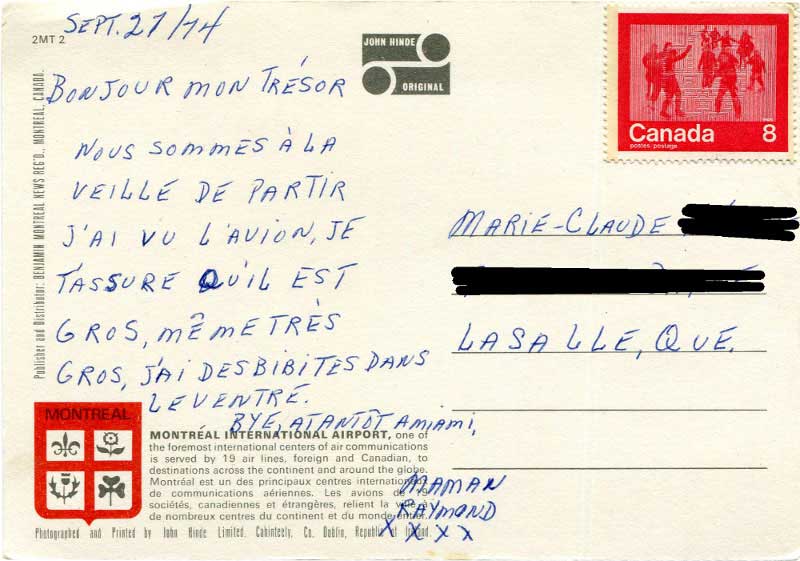 SEPT. 27/74
2MT 2
BONJOUR MON TRÉSOR
NOUS SOMMES À LA
VEILLE DE PARTIR
J'AI VU L'AVION, JE
T'ASSURE QU'IL EST
GROS, MÊME TRÈS
GROS, J'AI DES BIBITES DANS
LE VENTRE.
BYE, A TANTÔT A MIAMI,
MAMAN
RAYMOND
X X X X
JOHN HINDE
ORIGINAL
Canada 8
postes postage
MARIE-CLAUDE
LASALLE, QUE.
Publisher and Distributor: BENJAMIN MONTREAL NEWS REG'D., MONTREAL, CANADA.
MONTREAL
MONTRÉAL INTERNATIONAL AIRPORT, one of
the foremost international centers of air communications
is served by 19 air lines, foreign and Canadian, to
destinations across the continent and around the globe.
Montréal est un des principaux centres internationaux
de communications aériennes. Les avions de 19
sociétés, canadiennes et étrangères, relient la ville à
de nombreux centres du continent et du monde entier.
Photographed and Printed by John Hinde Limited, Cabinteely, Co. Dublin, Republic of Ireland.